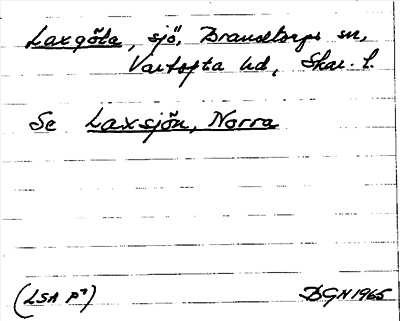 Laxgöla, sjö, Brandstorps sn,
Vartofta hd, Skar. l.
Se Laxsjön, Norra
(LSA P7) BGN 1965